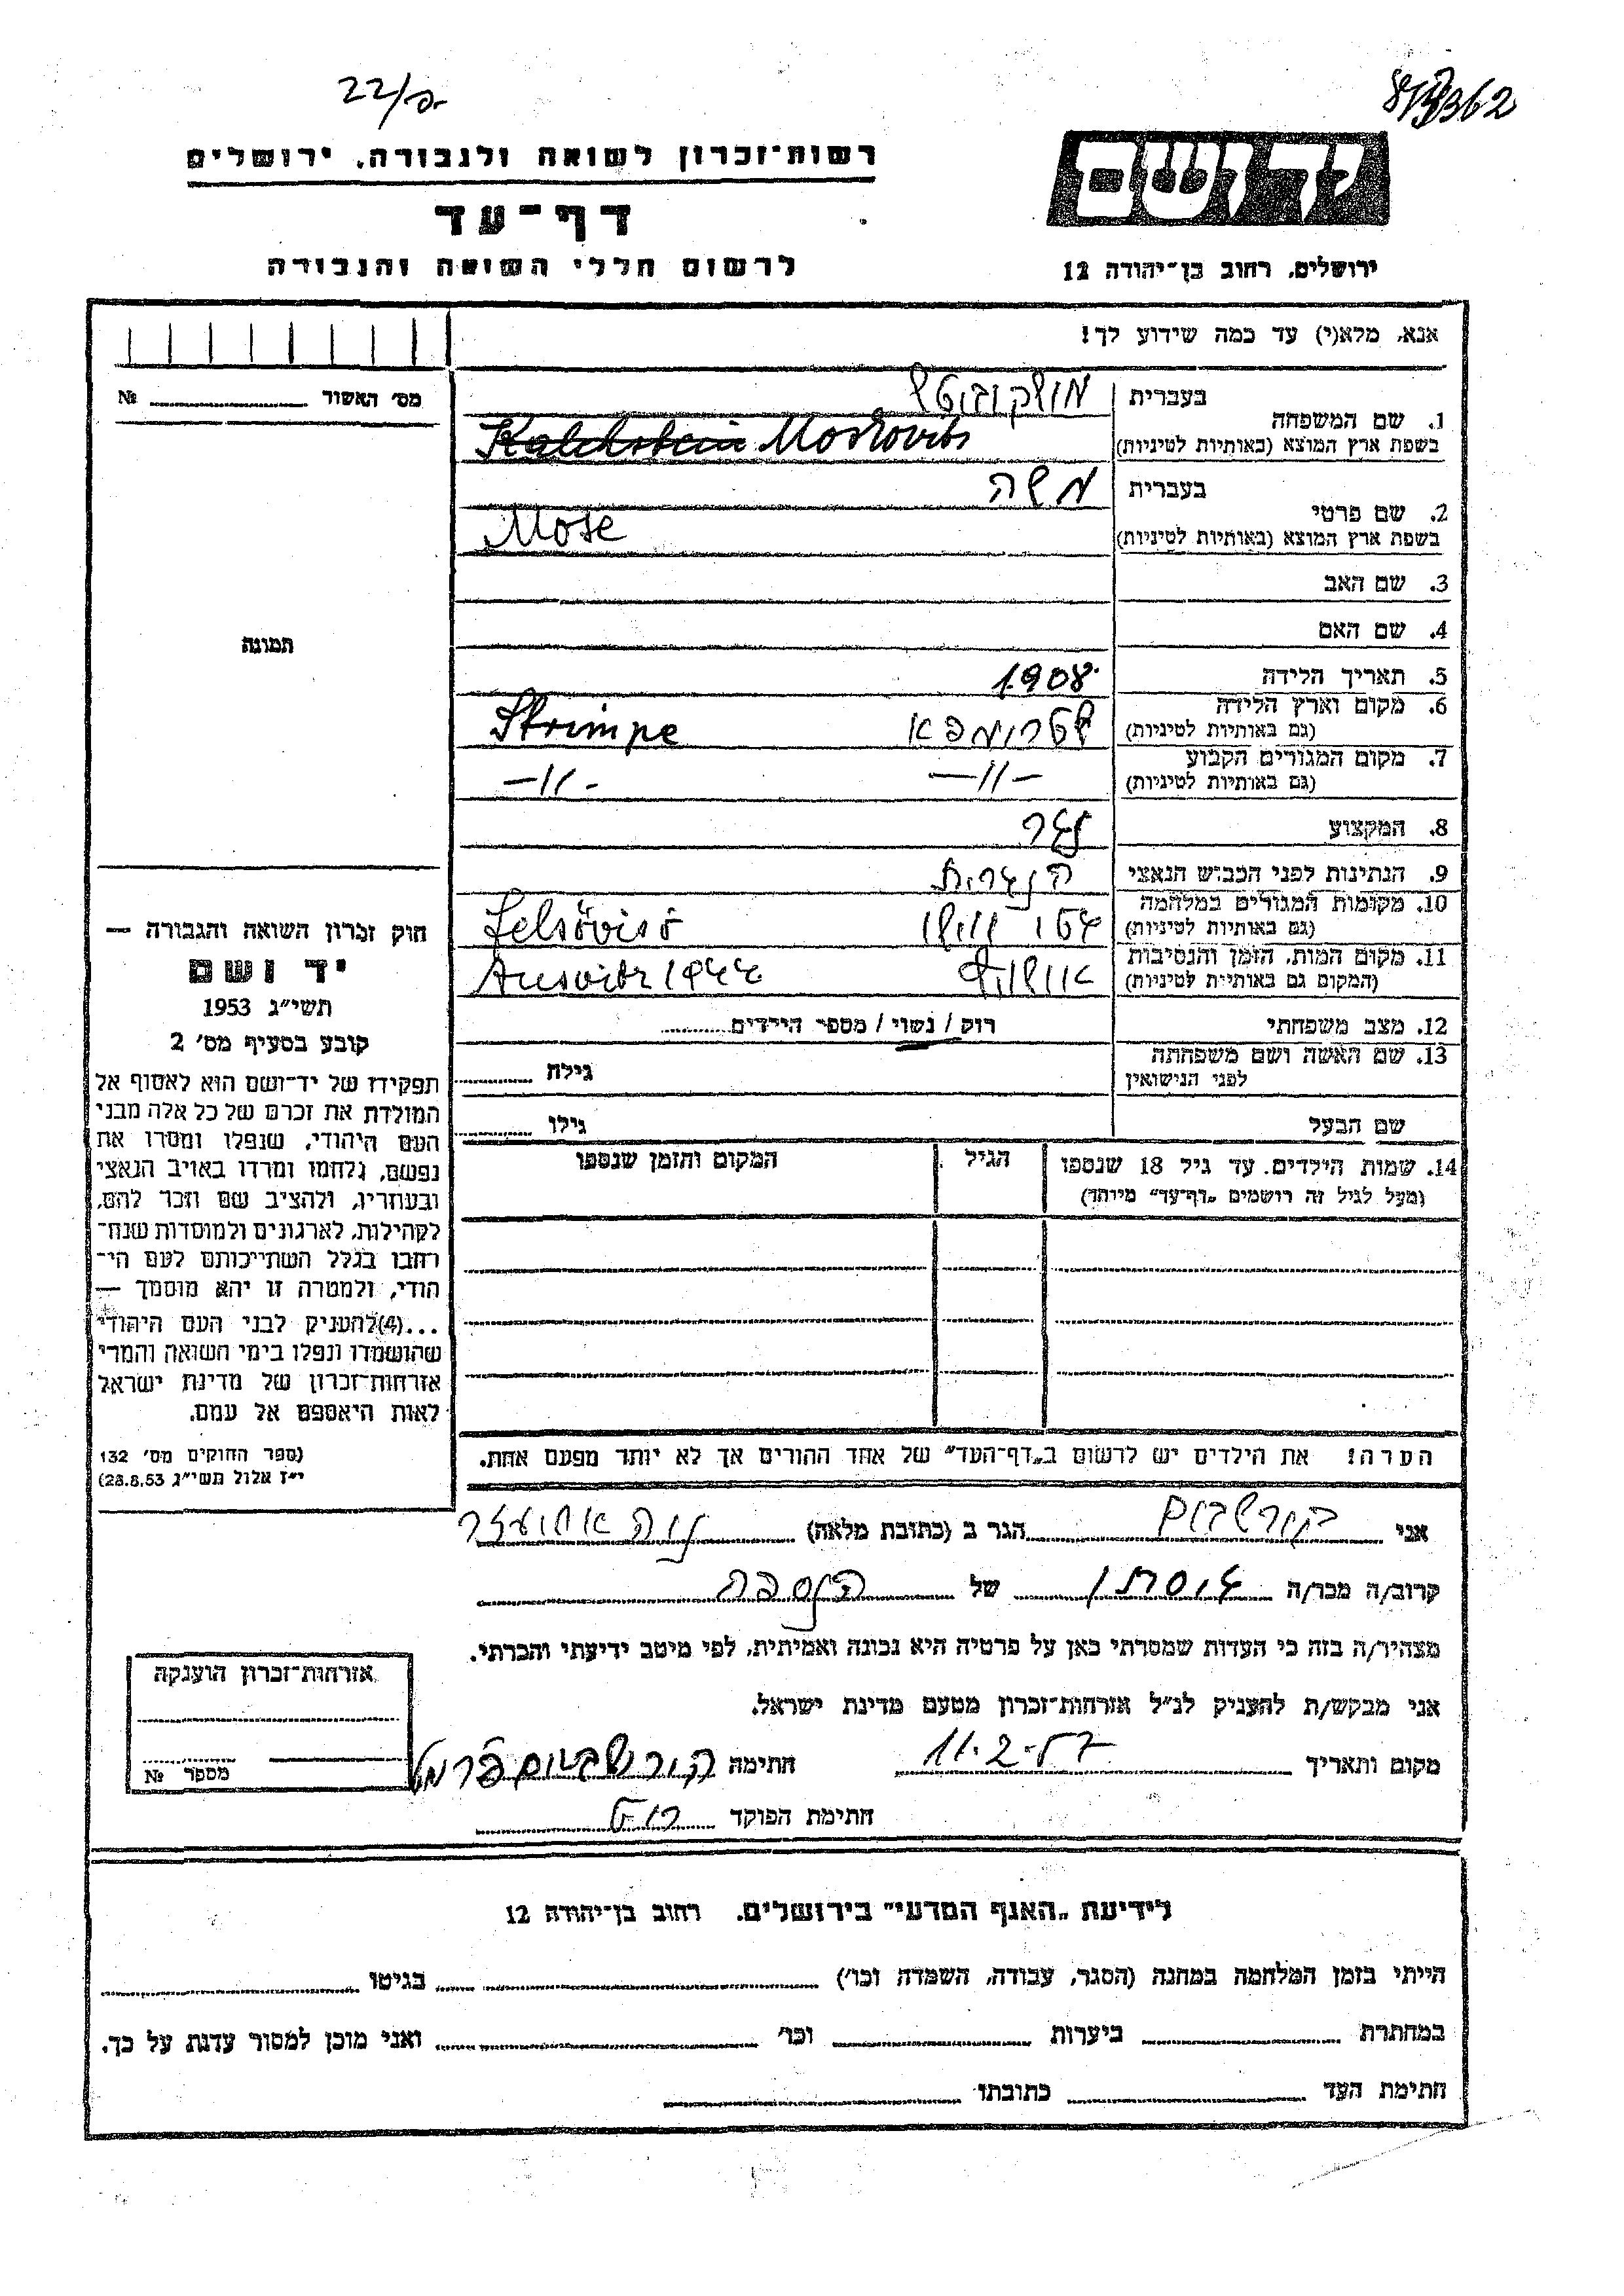 22/פ
רשות־זכרון לשואה ולגבורה, ירושלים
דף־עד
לרשום חללי השואה והגבורה
יד ושם
ירושלים, רחוב בן־יהודה 12
אנא, מלא(י) עד כמה שידוע לך!
מס׳ האשור № 
1. שם המשפחה
בעברית מושקוביטש
בשפת ארץ המוצא (באותיות לטיניות) Kalchstein Moskovits
2. שם פרטי
בעברית משה
בשפת ארץ המוצא (באותיות לטיניות) Mose
3. שם האב
4. שם האם
תמונה
5. תאריך הלידה 1908
6. מקום וארץ הלידה שטרימפא Strimpe
(גם באותיות לטיניות)
7. מקום המגורים הקבוע —״— —״—
(גם באותיות לטיניות)
8. המקצוע נגר
9. הנתינות לפני הכבוש הנאצי הונגרית
10. מקומות המגורים במלחמה Felsövisó
(גם באותיות לטיניות)
11. מקום המות, הזמן והנסיבות אושויץ Ausvitz 1944
(המקום גם באותיות לטיניות)
12. מצב משפחתי רווק / נשוי / מספר הילדים
13. שם האשה ושם משפחתה גילה
לפני הנישואין
שם הבעל גילו
14. שמות הילדים, עד גיל 18 שנספו הגיל המקום והזמן שנספו
(מעל לגיל זה רושמים „דף־עד״ מיוחד)
הערה! את הילדים יש לרשום ב„דף־העד״ של אחד ההורים אך לא יותר מפעם אחת.
חוק זכרון השואה והגבורה —
יד ושם
תשי״ג 1953
קובע בסעיף מס׳ 2
תפקידו של יד־ושם הוא לאסוף אל
המולדת את זכרם של כל אלה מבני
העם היהודי, שנפלו ומסרו את
נפשם, נלחמו ומרדו באויב הנאצי
ובעוזריו, ולהציב שם וזכר להם,
לקהילות, לארגונים ולמוסדות שנח־
רבו בגלל השתייכותם לעם הי־
הודי, ולמטרה זו יהא מוסמך —
...(4)להעניק לבני העם היהודי
שהושמדו ונפלו בימי השואה והמרי
אזרחות־זכרון של מדינת ישראל
לאות היאספם אל עמם.
(ספר החוקים מס׳ 132
י״ז אלול תשי״ג 28.8.53)
אני בקורשבוים הגר ב (כתובת מלאה)
קרוב/ה מכר/ה של
מצהיר/ה בזה כי העדות שמסרתי כאן על פרטיה היא נכונה ואמיתית, לפי מיטב ידיעתי והכרתי.
אני מבקש/ת להעניק לנ״ל אזרחות־זכרון מטעם מדינת ישראל.
מקום ותאריך 11.2.57 חתימה
חתימת הפוקד
אזרחות־זכרון הוענקה
מספר №
לידיעת „האגף המדעי״ בירושלים, רחוב בן־יהודה 12
הייתי בזמן המלחמה במחנה (הסגר, עבודה, השמדה וכו׳) בגיטו
במחתרת ביערות וכו׳ ואני מוכן למסור עדות על כך.
חתימת העד כתובתו